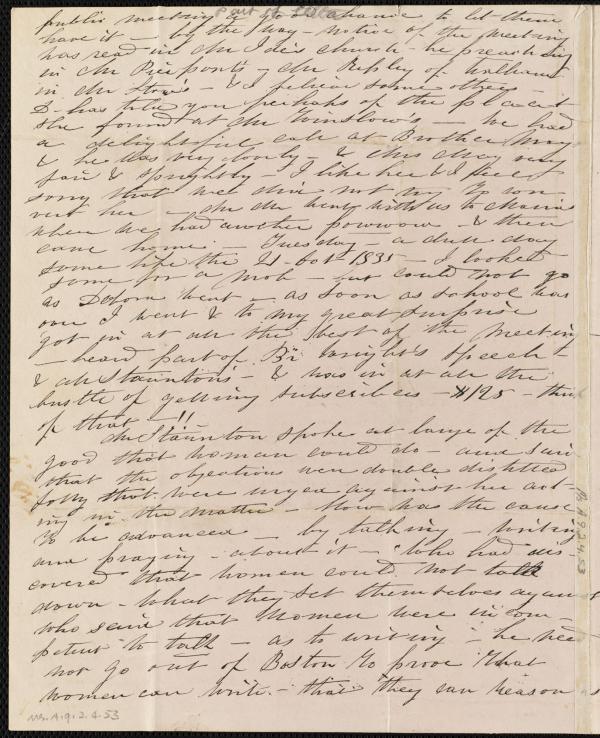 public meeting a good chance to let them
have it - by the way - notice of the meeting
was read in Mr Ide's church - he preaching
in Mr Pierpont's - Mr Ripley of Waltham
in Mr - & I believe some others -
D- has told you perhaps of the placard
she found at the Winslow's - We had
a delightful call at Brother May's
& he was very lovely - & Mrs May very
fair & sprightly - I like her & I feel
sorry that we did not try to con-
vert her - Mr Mr went with us to
when we had another powwow - & then
came home. - Tuesday - a dull day
some like the 21- Oct 1835 - I looked
some for a mob - but could not go
as Debora went - as soon as school was
over I went & to my great surprise
got in at all the best of the meeting
- heard part of Br Wright's speech -
& all Staunton's - & was in at all the
bustle of getting subscribers - $125 - think
of that - !!
Mr Staunton spoke at large of the
good that woman could do - and said
that the objections were double distilled
folly that were urged against her act-
ing in the matter - How was the cause
to be advanced - by talking - writing
and praying - about it - "who had dis-
covered that women could not talk
down - what they set themselves against
who said that women were incom-
petent to talk - as to writing - he need
not go out of Boston to prove that
women can write. - that they can reason
part of
Ms. A.9.2.4.53
Ms. A.9.2.4.53